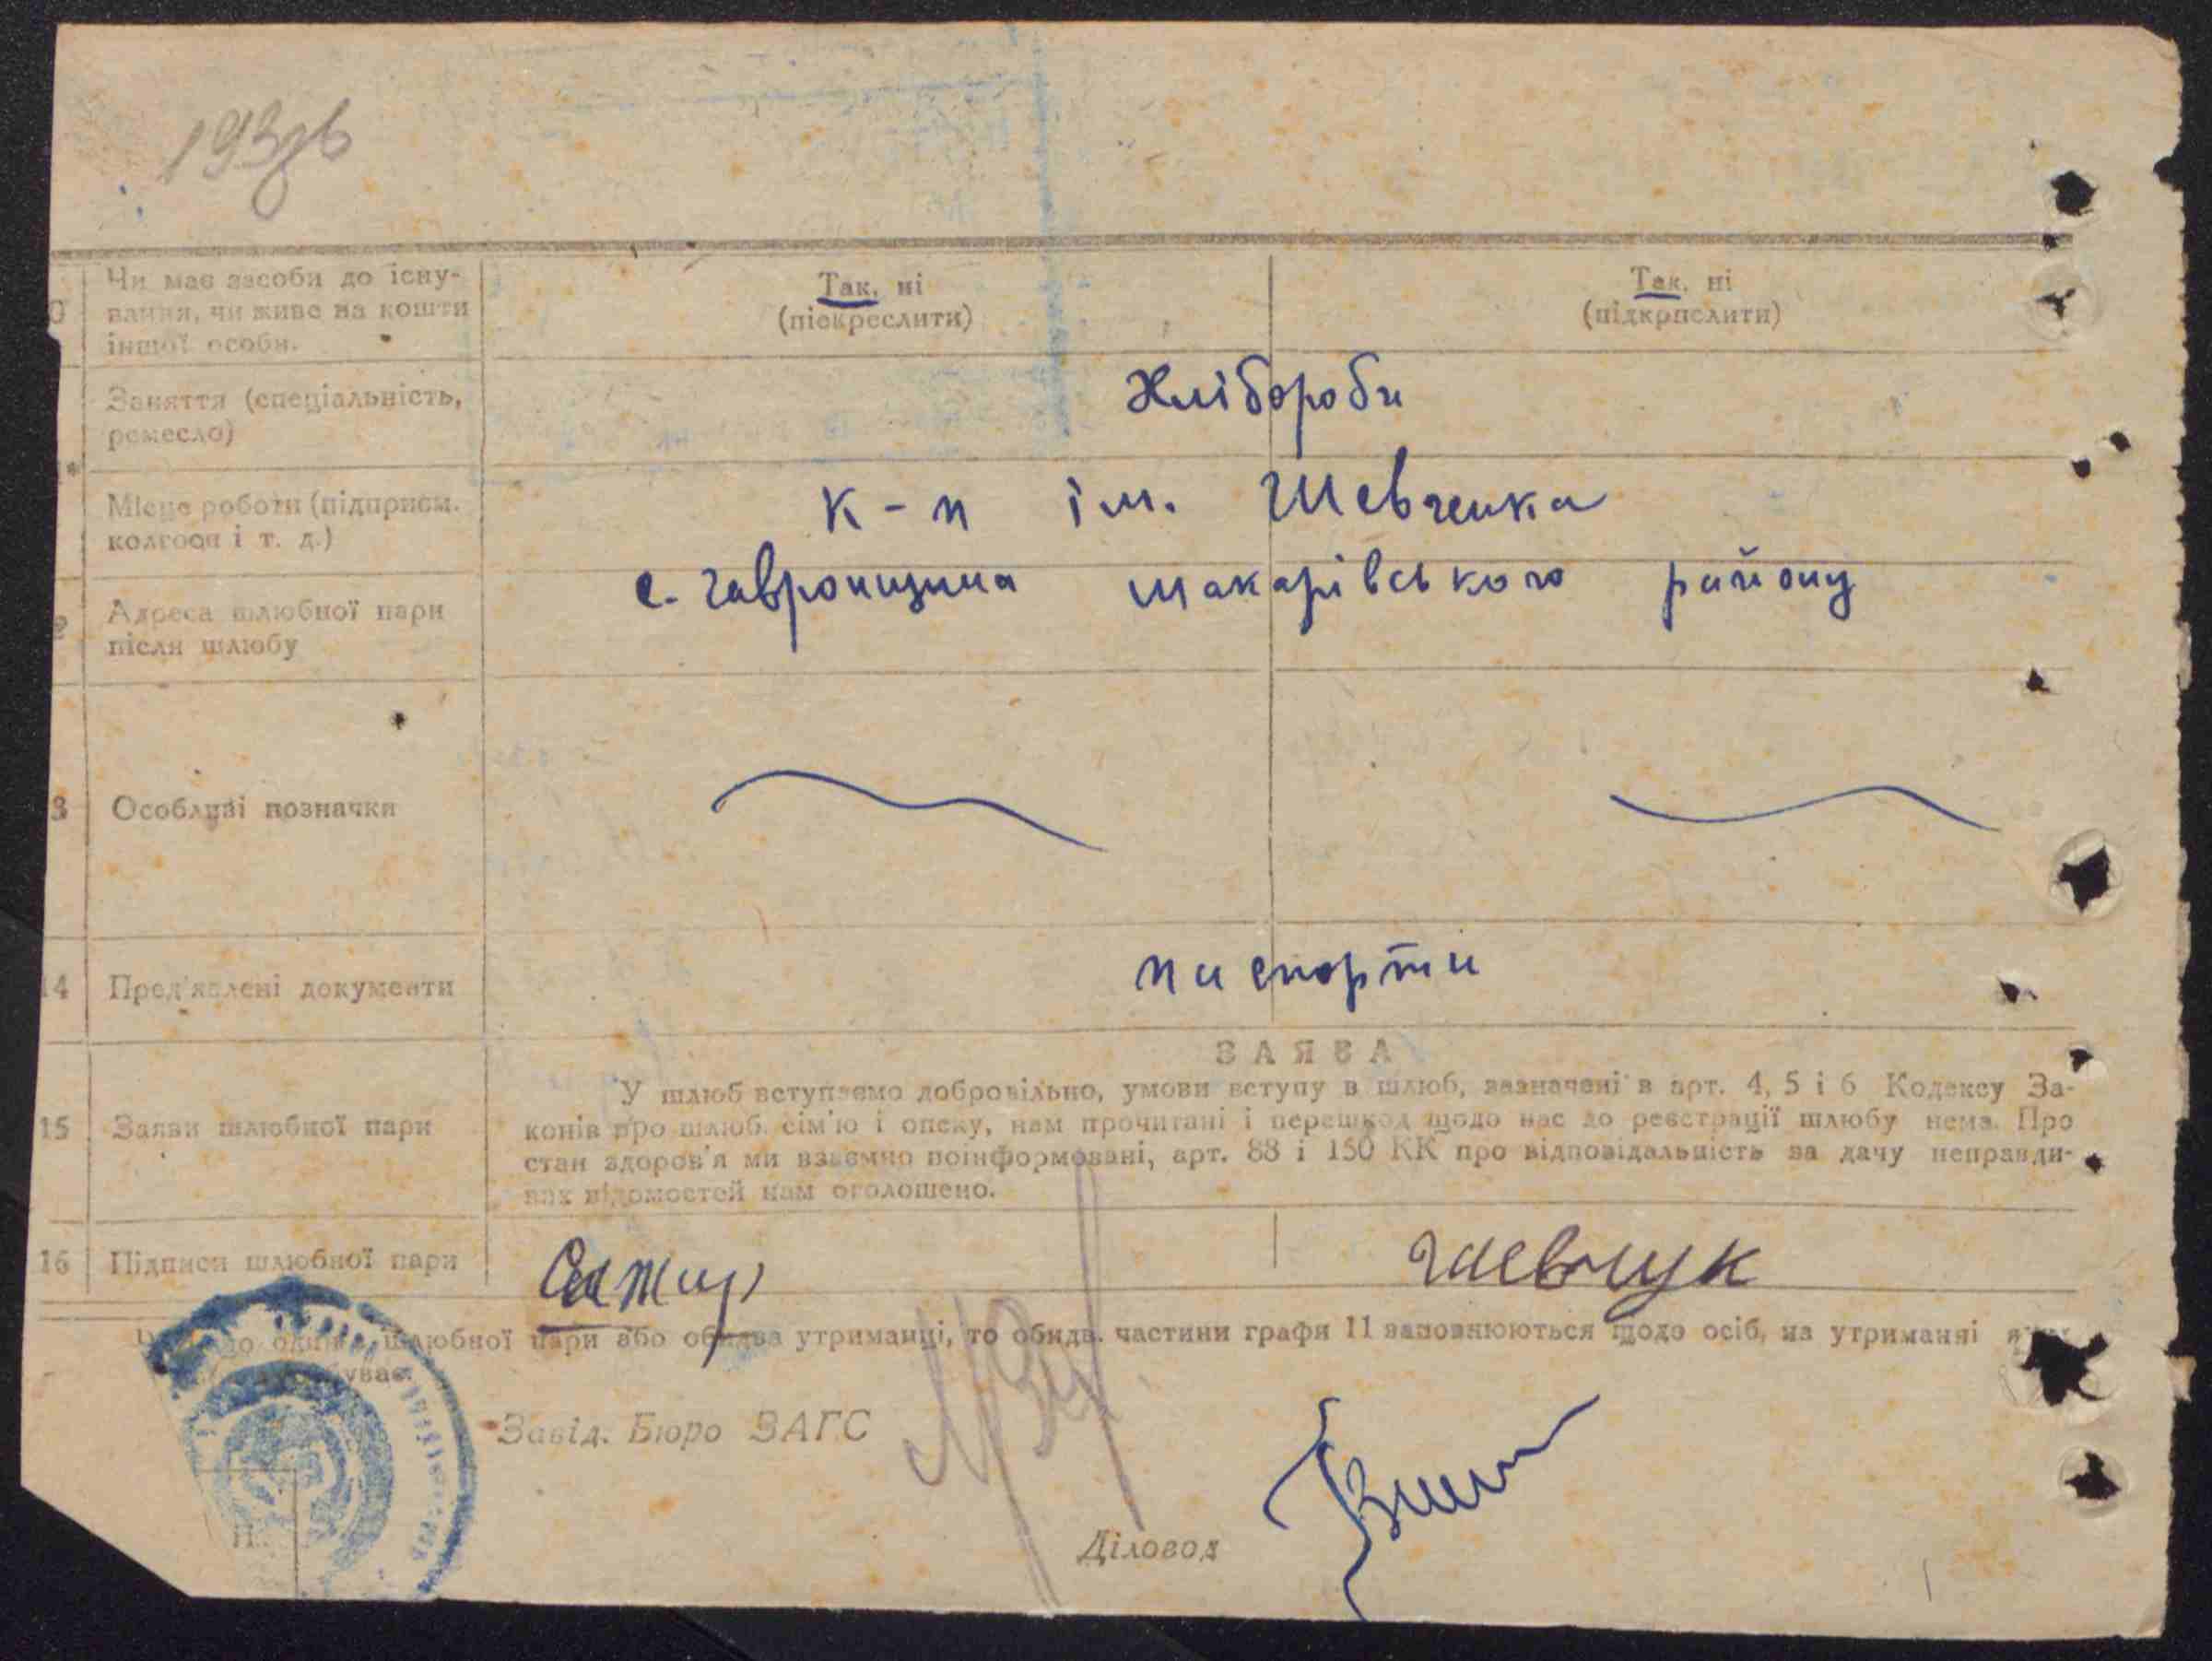 Чи має засоби до існу-
вання, чи живе на кошти
іншої особи.
Так, ні
(піекреслити)
Так, ні
(підкрпслити)
Заняття (спеціальність,
ремесло)
Хлібороби
Місце роботи (підприєм.
колгосп і т. д.)
к-п ім. Шевченка
Адреса шлюбної пари
після шлюбу
с. Гавронщина Макарівського району
Особливі позначки
14 Пред'явлені документи
паспорти
ЗАЯВА
15 Заяви шлюбної пари
У шлюб вступаємо добровільно, умови вступу в шлюб, зазначені в арт. 4, 5 і 6 Кодексу За-
конів про шлюб, сім'ю і опеку, нам прочитані і перешкод щодо нас до реєстрації шлюбу нема. Про
стан здоров'я ми взаємно поінформовані, арт. 88 і 150 КК про відповідальність за дачу неправди-
вих відомостей нам оголошено.
16 Підписи шлюбної пари
Шевчук
шлюбної пари або обидва утриманці, то обидв. частини графи 11 заповнюються щодо осіб, на утриманні
Завід. Бюро ЗАГС
Діловод